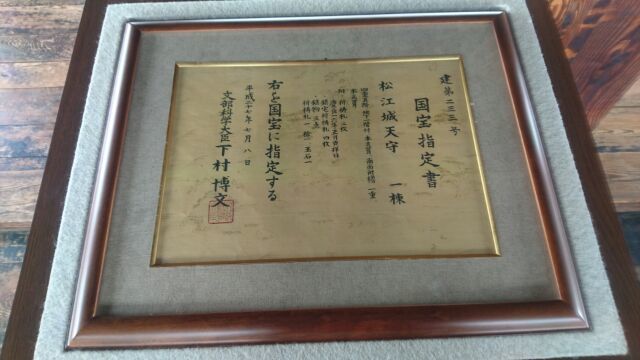 建第二二三号
国宝指定書
松江城天守 一棟
四重五階 地下一階付 本瓦葺 南面附櫓 一重
本瓦葺
附 祈祷札 二枚
鎮宅祈祷札 四枚
鎮物 三点
祈祷札 一 槍 一 玉石 一
右を国宝に指定する
平成二十七年七月八日
文部科学大臣 下村博文